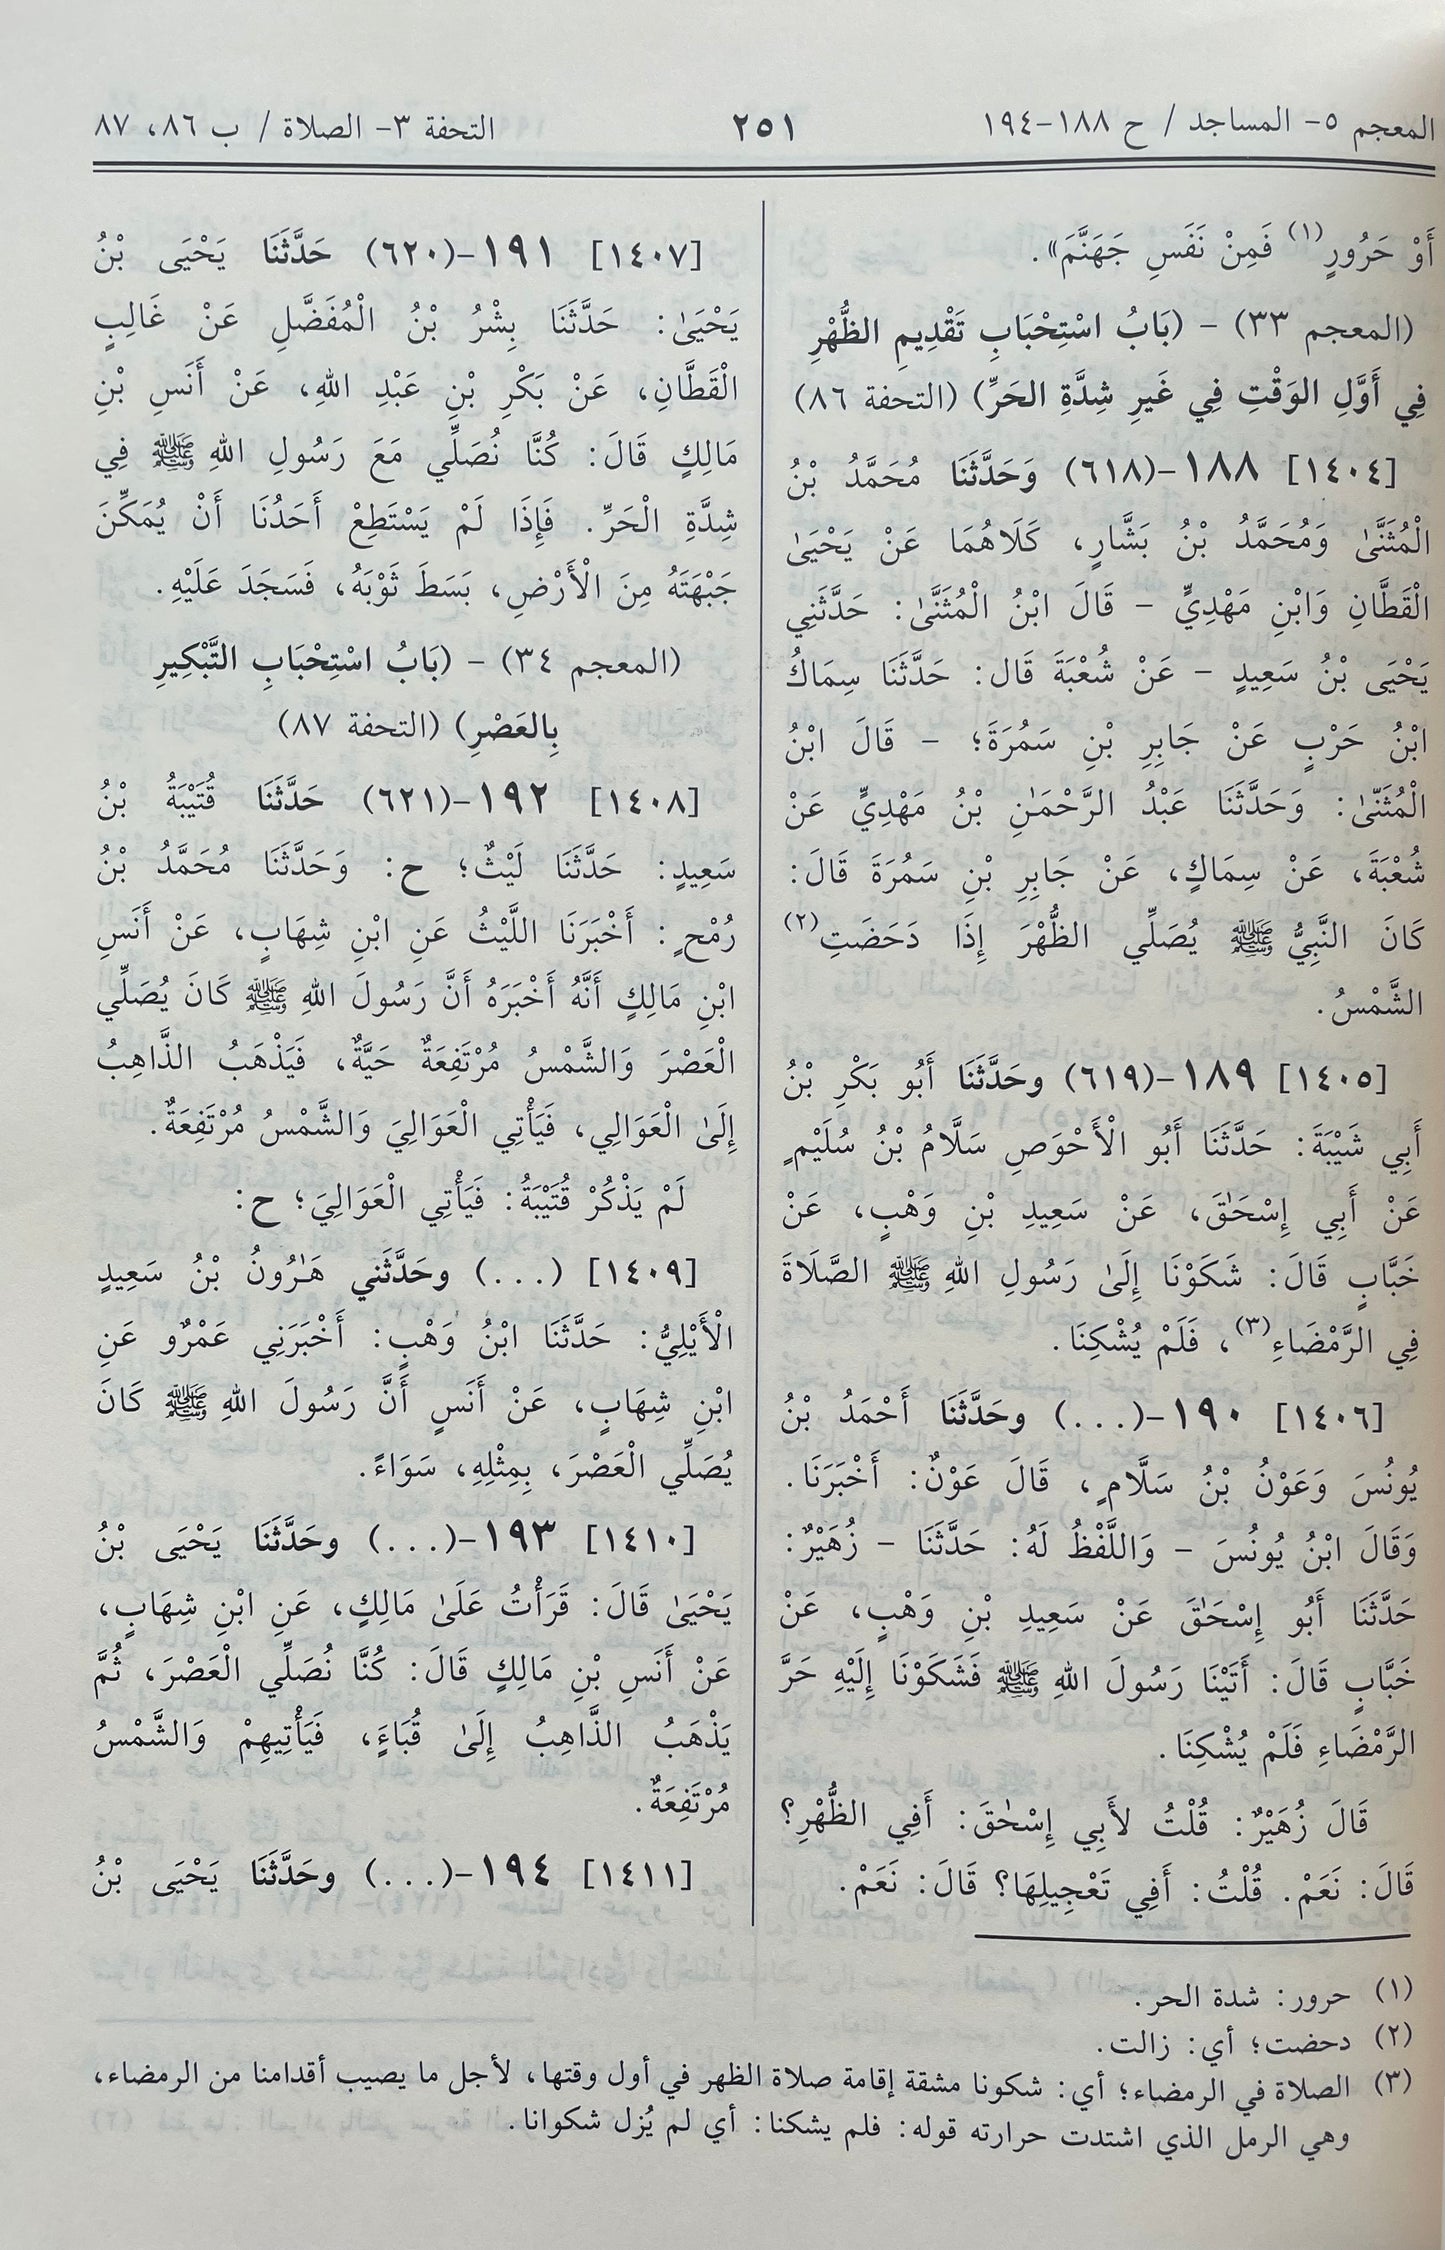 المعجم ٥- المساجد / ح ١٨٨-١٩٤
٢٥١
التحفة ٣- الصلاة / ب ٨٦، ٨٧
أَوْ حَرُورٍ(١) فَمِنْ نَفَسِ جَهَنَّمَ».
(المعجم ٣٣) - (بَابُ اسْتِحْبَابِ تَقْدِيمِ الظُّهْرِ
فِي أَوَّلِ الوَقْتِ فِي غَيرِ شِدَّةِ الحَرِّ) (التحفة ٨٦)
[١٤٠٤] ١٨٨-(٦١٨) وَحَدَّثَنَا مُحَمَّدُ بْنُ
الْمُثَنَّىٰ وَمُحَمَّدُ بْنُ بَشَّارٍ، كَلَاهُمَا عَنْ يَحْيَىٰ
الْقَطَّانِ وَابْنِ مَهْدِيٍّ - قَالَ ابْنُ الْمُثَنَّىٰ: حَدَّثَنِي
يَحْيَى بْنُ سَعِيدٍ - عَنْ شُعْبَةَ قَال: حَدَّثَنَا سِمَاكُ
ابْنُ حَرْبٍ عَنْ جَابِرِ بْنِ سَمُرَةَ؛ - قَالَ ابْنُ
الْمُثَنّىٰ: وَحَدَّثَنَا عَبْدُ الرَّحْمَـٰنِ بْنُ مَهْدِيٍّ عَنْ
شُعْبَةَ، عَنْ سِمَاكٍ، عَنْ جَابِرِ بْنِ سَمُرَةَ قَالَ:
كَانَ النَّبِيُّ ﷺ يُصَلِّي الظُّهْرَ إِذَا دَحَضَتِ(٢)
الشَّمْسُ.
[١٤٠٥] ١٨٩-(٦١٩) وحَدَّثَنَا أَبُو بَكْرِ بْنُ
أَبِي شَيْبَةَ: حَدَّثَنَا أَبُو الْأَحْوَصِ سَلَّامُ بْنُ سُلَيْمٍ
عَنْ أَبِي إِسْحَـٰقَ، عَنْ سَعِيدِ بْنِ وَهْبٍ، عَنْ
خَبَّابٍ قَالَ: شَكَوْنَا إِلَىٰ رَسُولِ اللهِ ﷺ الصَّلَاةَ
فِي الرَّمْضَاءِ(٣)، فَلَمْ يُشْكِنَا.
[١٤٠٦] ١٩٠-(...) وحَدَّثَنَا أَحْمَدُ بْنُ
يُونُسَ وَعَوْنُ بْنُ سَلَّامٍ، قَالَ عَوْنٌ: أَخْبَرَنَا.
وَقَالَ ابْنُ يُونُسَ - وَاللَّفْظُ لَهُ: حَدَّثَنَا - زُهَيْرٌ:
حَدَّثَنَا أَبُو إِسْحَـٰقَ عَنْ سَعِيدِ بْنِ وَهْبٍ، عَنْ
خَبَّابٍ قَالَ: أَتَيْنَا رَسُولَ اللهِ ﷺ فَشَكَوْنَا إِلَيْهِ حَرَّ
الرَّمْضَاءِ فَلَمْ يُشْكِنَا.
قَالَ زُهَيْرٌ: قُلْتُ لأَبِي إِسْحَـٰقَ: أَفِي الظُّهْرِ؟
قَالَ: نَعَمْ. قُلْتُ: أَفِي تَعْجِيلِهَا؟ قَالَ: نَعَمْ.
[١٤٠٧] ١٩١-(٦٢٠) حَدَّثَنَا يَحْيَى بْنُ
يَحْيَىٰ: حَدَّثَنَا بِشْرُ بْنُ الْمُفَضَّلِ عَنْ غَالِبٍ
الْقَطَّانِ، عَنْ بَكْرِ بْنِ عَبْدِ اللهِ، عَنْ أَنَسِ بْنِ
مَالِكٍ قَالَ: كُنَّا نُصَلِّي مَعَ رَسُولِ اللهِ ﷺ فِي
شِدَّةِ الْحَرِّ. فَإِذَا لَمْ يَسْتَطِعْ أَحَدُنَا أَنْ يُمَكِّنَ
جَبْهَتَهُ مِنَ الْأَرْضِ، بَسَطَ ثَوْبَهُ، فَسَجَدَ عَلَيْهِ.
(المعجم ٣٤) - (بَابُ اسْتِحْبَابِ التَّبْكِيرِ
بِالعَصْرِ) (التحفة ٨٧)
[١٤٠٨] ١٩٢-(٦٢١) حَدَّثَنَا قُتَيْبَةُ بْنُ
سَعِيدٍ: حَدَّثَنَا لَيْثٌ؛ ح: وَحَدَّثَنَا مُحَمَّدُ بْنُ
رُمْحٍ: أَخْبَرَنَا اللَّيْثُ عَنِ ابْنِ شِهَابٍ، عَنْ أَنَسِ
ابْنِ مَالِكٍ أَنَّهُ أَخْبَرَهُ أَنَّ رَسُولَ اللهِ ﷺ كَانَ يُصَلِّي
الْعَصْرَ وَالشَّمْسُ مُرْتَفِعَةٌ حَيَّةٌ، فَيَذْهَبُ الذَّاهِبُ
إِلَىٰ الْعَوَالِي، فَيَأْتِي الْعَوَالِيَ وَالشَّمْسُ مُرْتَفِعَةٌ.
لَمْ يَذْكُرْ قُتَيْبَةُ: فَيَأْتِي الْعَوَالِيَ؛ ح:
[١٤٠٩] (...) وحَدَّثَني هَـٰرُونُ بْنُ سَعِيدٍ
الْأَيْلِيُّ: حَدَّثَنَا ابْنُ وَهْبٍ: أَخْبَرَنِي عَمْرٌو عَنِ
ابْنِ شِهَابٍ، عَنْ أَنَسٍ أَنَّ رَسُولَ اللهِ ﷺ كَانَ
يُصَلِّي الْعَصْرَ، بِمِثْلِهِ، سَوَاءً.
[١٤١٠] ١٩٣-(...) وحَدَّثَنَا يَحْيَى بْنُ
يَحْيَىٰ قَالَ: قَرَأْتُ عَلَىٰ مَالِكٍ، عَنِ ابْنِ شِهَابٍ،
عَنْ أَنَسِ بْنِ مَالِكٍ قَالَ: كُنَّا نُصَلِّي الْعَصْرَ، ثُمَّ
يَذْهَبُ الذَّاهِبُ إِلَىٰ قُبَاءٍ، فَيَأْتِيهِمْ وَالشَّمْسُ
مُرْتَفِعَةٌ.
[١٤١١] ١٩٤-(...) وحَدَّثَنَا يَحْيَى بْنُ
(١) حرور: شدة الحر.
(٢) دحضت؛ أي: زالت.
(٣) الصلاة في الرمضاء؛ أي: شكونا مشقة إقامة صلاة الظهر في أول وقتها، لأجل ما يصيب أقدامنا من الرمضاء،
وهي الرمل الذي اشتدت حرارته قوله: فلم يشكنا: أي لم يُزل شكوانا.